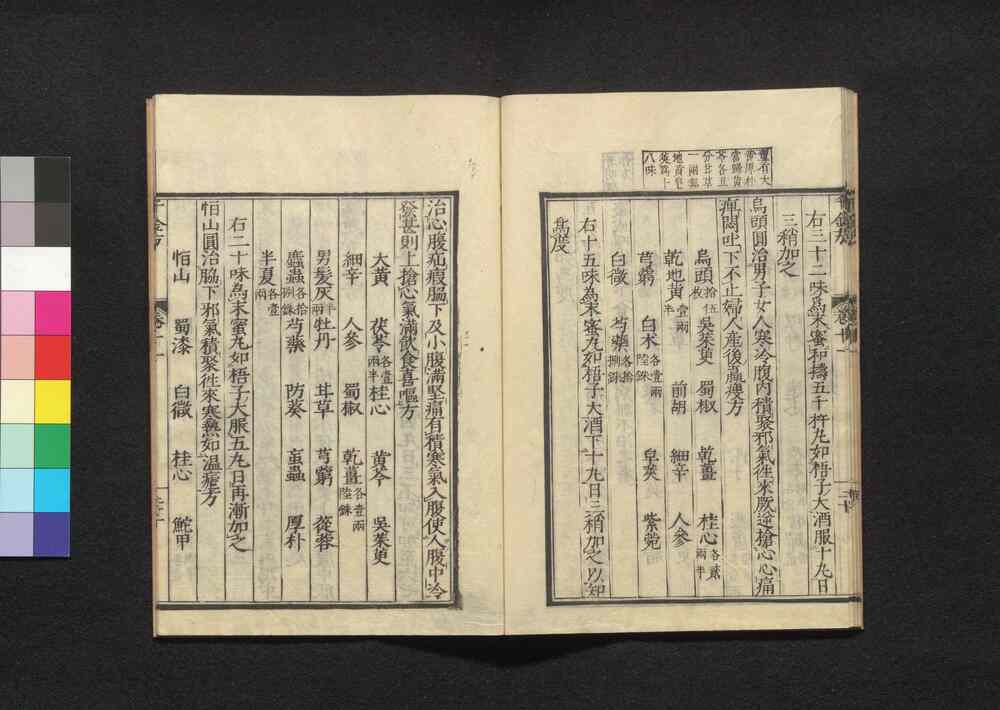 右三十二味爲末蜜和擣五千杵丸如梧子大酒服十丸日
三稍加之
烏頭圓治男子女人寒冷腹內積聚邪氣往來厥逆搶心心痛
痺悶吐下不止婦人產後羸瘦方
烏頭拾伍枚 吳茱萸 蜀椒 乾薑 桂心各貳兩半
乾地黃壹兩半 前胡 細辛 人參
芎藭 白朮各壹兩陸銖 皁莢 紫菀
白薇 芍藥各拾捌銖
右十五味爲末蜜丸如梧子大酒下十丸日三稍加之以知
爲度
治心腹疝瘕脇下及小腹滿堅痛有積寒氣入腹使人腹中冷
發甚則上搶心氣滿飲食喜嘔方
大黃 茯苓各壹兩半 桂心 黃芩 吳茱萸
細辛 人參 蜀椒 乾薑各壹兩陸銖
男髮灰半兩 牡丹 甘草 芎藭 蓯蓉
䗪蟲各拾捌銖 芍藥 防葵 虻蟲 厚朴
半夏各壹兩
右二十味爲末蜜丸如梧子大服五丸日再漸加之
恒山圓治脇下邪氣積聚往來寒熱如溫瘧方
恒山 蜀漆 白薇 桂心 鮀甲